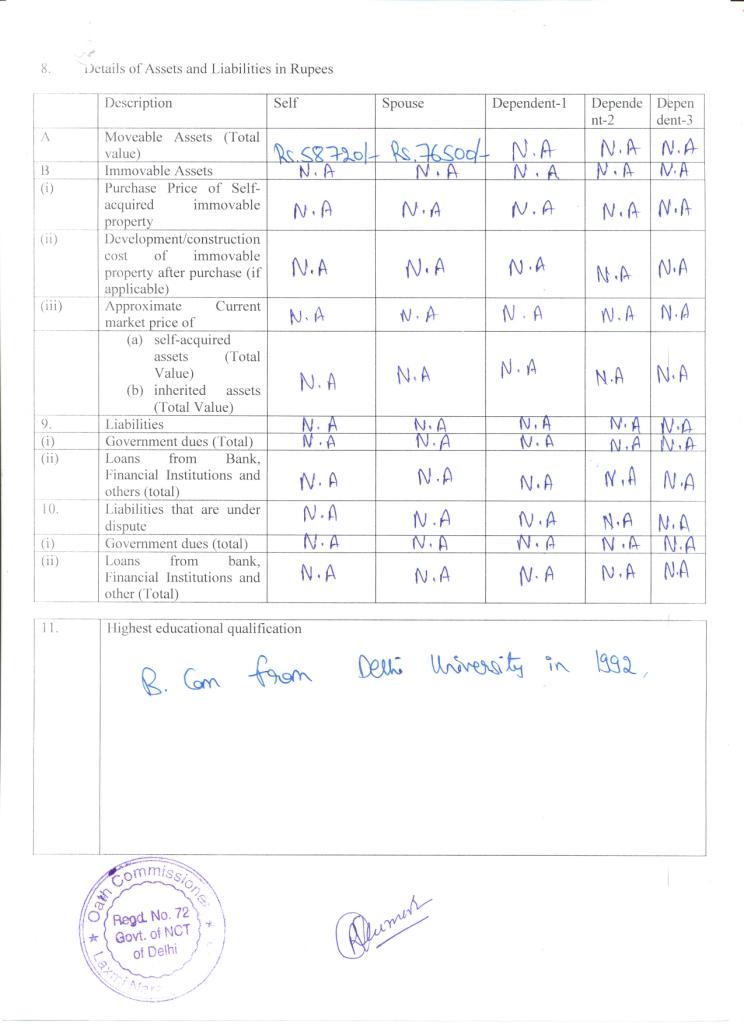 8. Details of Assets and Liabilities in Rupees
Description Self Spouse Dependent-1 Depende Depen
nt-2 dent-3
A Moveable Assets (Total
value) Rs.58720/- Rs.76500/- N.A N.A N.A
B Immovable Assets N.A N.A N.A N.A N.A
(i) Purchase Price of Self-
acquired immovable N.A N.A N.A N.A N.A
property
(ii) Development/construction
cost of immovable
property after purchase (if N.A N.A N.A N.A N.A
applicable)
(iii) Approximate Current
market price of N.A N.A N.A N.A N.A
(a) self-acquired
assets (Total
Value) N.A N.A N.A N.A N.A
(b) inherited assets
(Total Value)
9. Liabilities N.A N.A N.A N.A N.A
(i) Government dues (Total) N.A N.A N.A N.A N.A
(ii) Loans from Bank,
Financial Institutions and N.A N.A N.A N.A N.A
others (total)
10. Liabilities that are under
dispute N.A N.A N.A N.A N.A
(i) Government dues (total) N.A N.A N.A N.A N.A
(ii) Loans from bank,
Financial Institutions and N.A N.A N.A N.A N.A
other (Total)
11. Highest educational qualification
B. Com from Delhi University in 1992.
Oath Commissioner
Regd. No. 72
Govt. of NCT
of Delhi
Laxmi